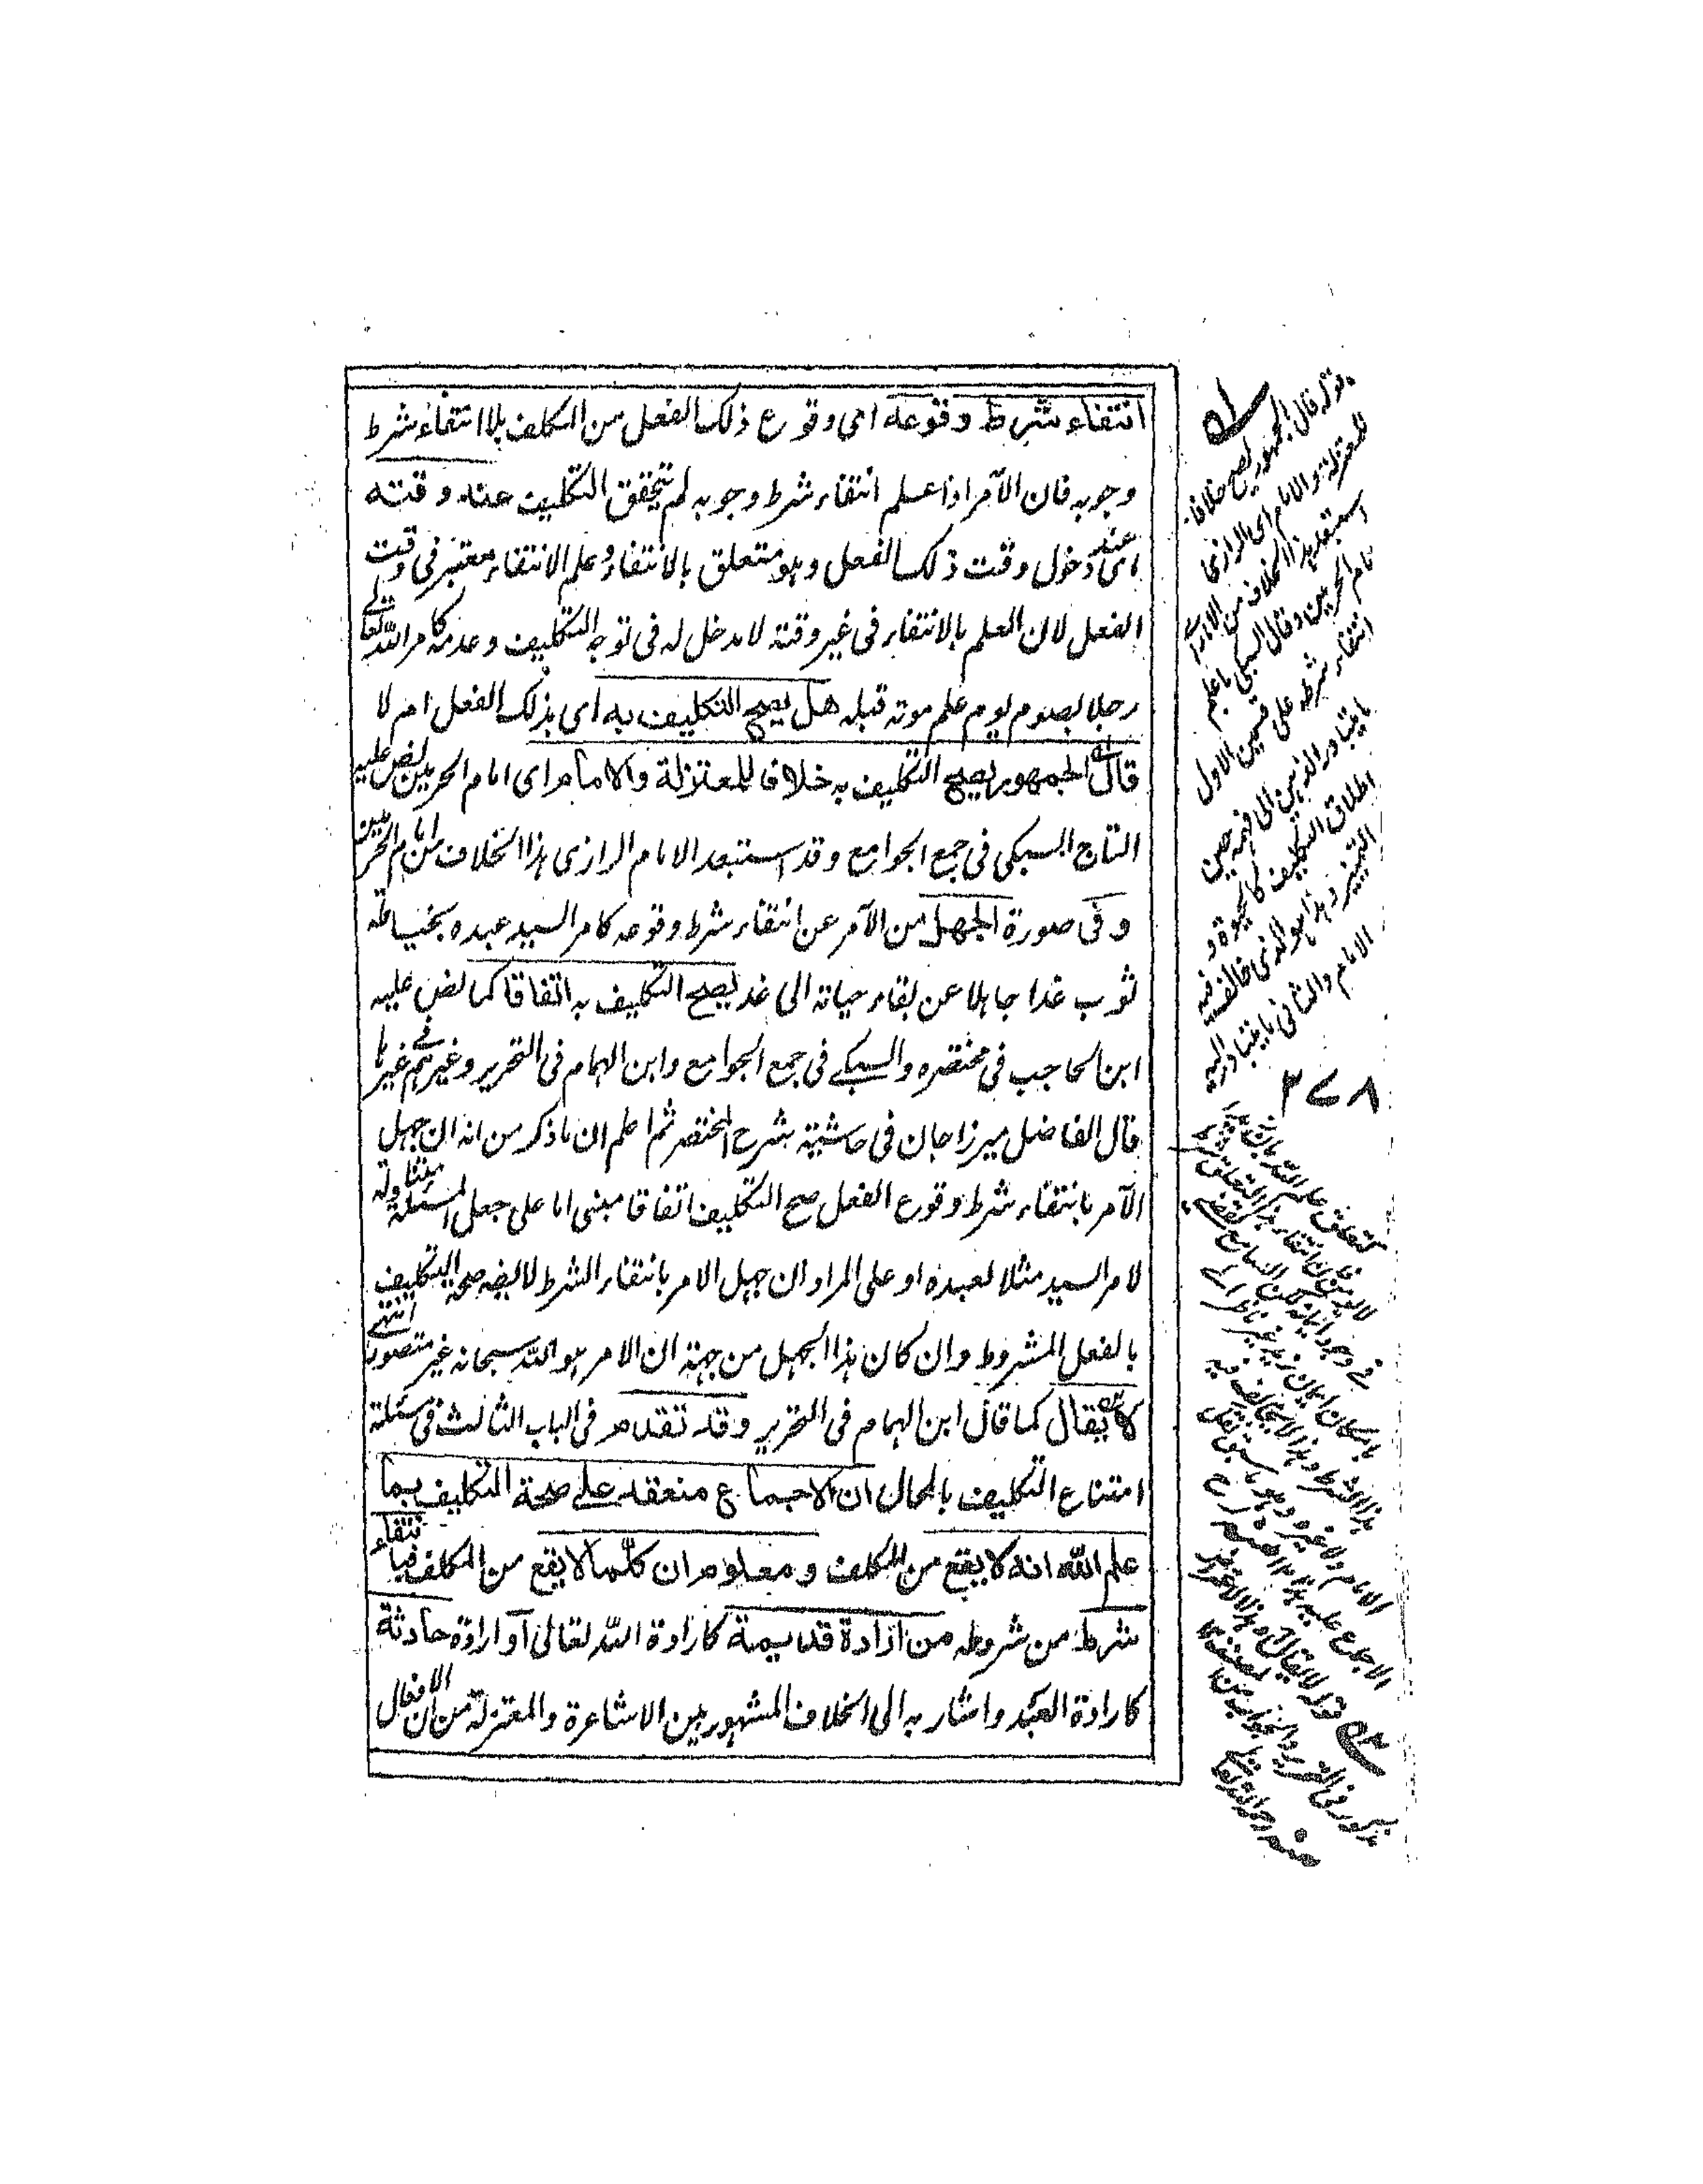 انتفاء شرط وقوعه اى وقوع ذلك الفعل من المكلف بلا انتفاء شرط
وجوبه فان الآمر اذا علم انتفاء شرط وجوبه لم يتحقق التكليف عند وقته
اى عند دخول وقت ذلك الفعل وهو متعلق بالانتفاء وعلم الانتفاء معتبر فى وقت
الفعل لان العلم بالانتفاء فى غير وقته لا مدخل له فى توجه التكليف وعدمه كامر الله تعالى
رجلا بصوم يوم علم موته قبله هل يصح التكليف به اى بذلك الفعل ام لا
قال الجمهور يصح التكليف به خلافا للمعتزلة والامام اى امام الحرمين نص عليه
التاج السبكى فى جمع الجوامع وقد استبعد الامام الرازى هذا الخلاف من امام الحرمين
وفى صورة الجهل من الآمر عن انتفاء شرط وقوعه كامر السيد عبده بخياطة
ثوب غدا جاهلا عن بقاء حياته الى غد يصح التكليف به اتفاقا كما نص عليه
ابن الحاجب فى مختصره والسبكى فى جمع الجوامع وابن الهمام فى التحرير وغيرهم فى غيرها
قال الفاضل ميرزا جان فى حاشية شرح المختصر ثم اعلم ان ما ذكر من انه ان جهل
الآمر بانتفاء شرط وقوع الفعل صح التكليف اتفاقا مبنى اما على جعل المسئلة متناولة
لامر السيد مثلا لعبده او على المراد ان جهل الامر بانتفاء الشرط لا يضر صحة التكليف
بالفعل المشروط وان كان هذا الجهل من جهة ان الامر هو الله سبحانه غير متصور انتهى
لا يقال كما قال ابن الهمام فى التحرير وقد تقدم فى الباب الثالث فى مسئلة
امتناع التكليف بالمحال ان الاجماع منعقد على صحة التكليف بما
علم الله انه لا يقع من المكلف ومعلوم ان كلما لا يقع من المكلف فبانتفاء
شرط من شروطه من ارادة قديمة كارادة الله تعالى او ارادة حادثة
كارادة العبد واشار به الى الخلاف المشهور بين الاشاعرة والمعتزلة من ان الافعال
قوله قال الجمهور يصح خلافا
للمعتزلة والامام اى الرازى
استبعد هذا الخلاف من الامام
امام الحرمين وقال السبكى ما علم
انتفاء شرطه على قسمين الاول
ما يتبادر الذهن الى فهمه حين
اطلاق التكليف كالحيوة و
التمييز وهذا هو الذى خالف فيه
الامام والثانى ما يتبادر اليه
٢٧٨